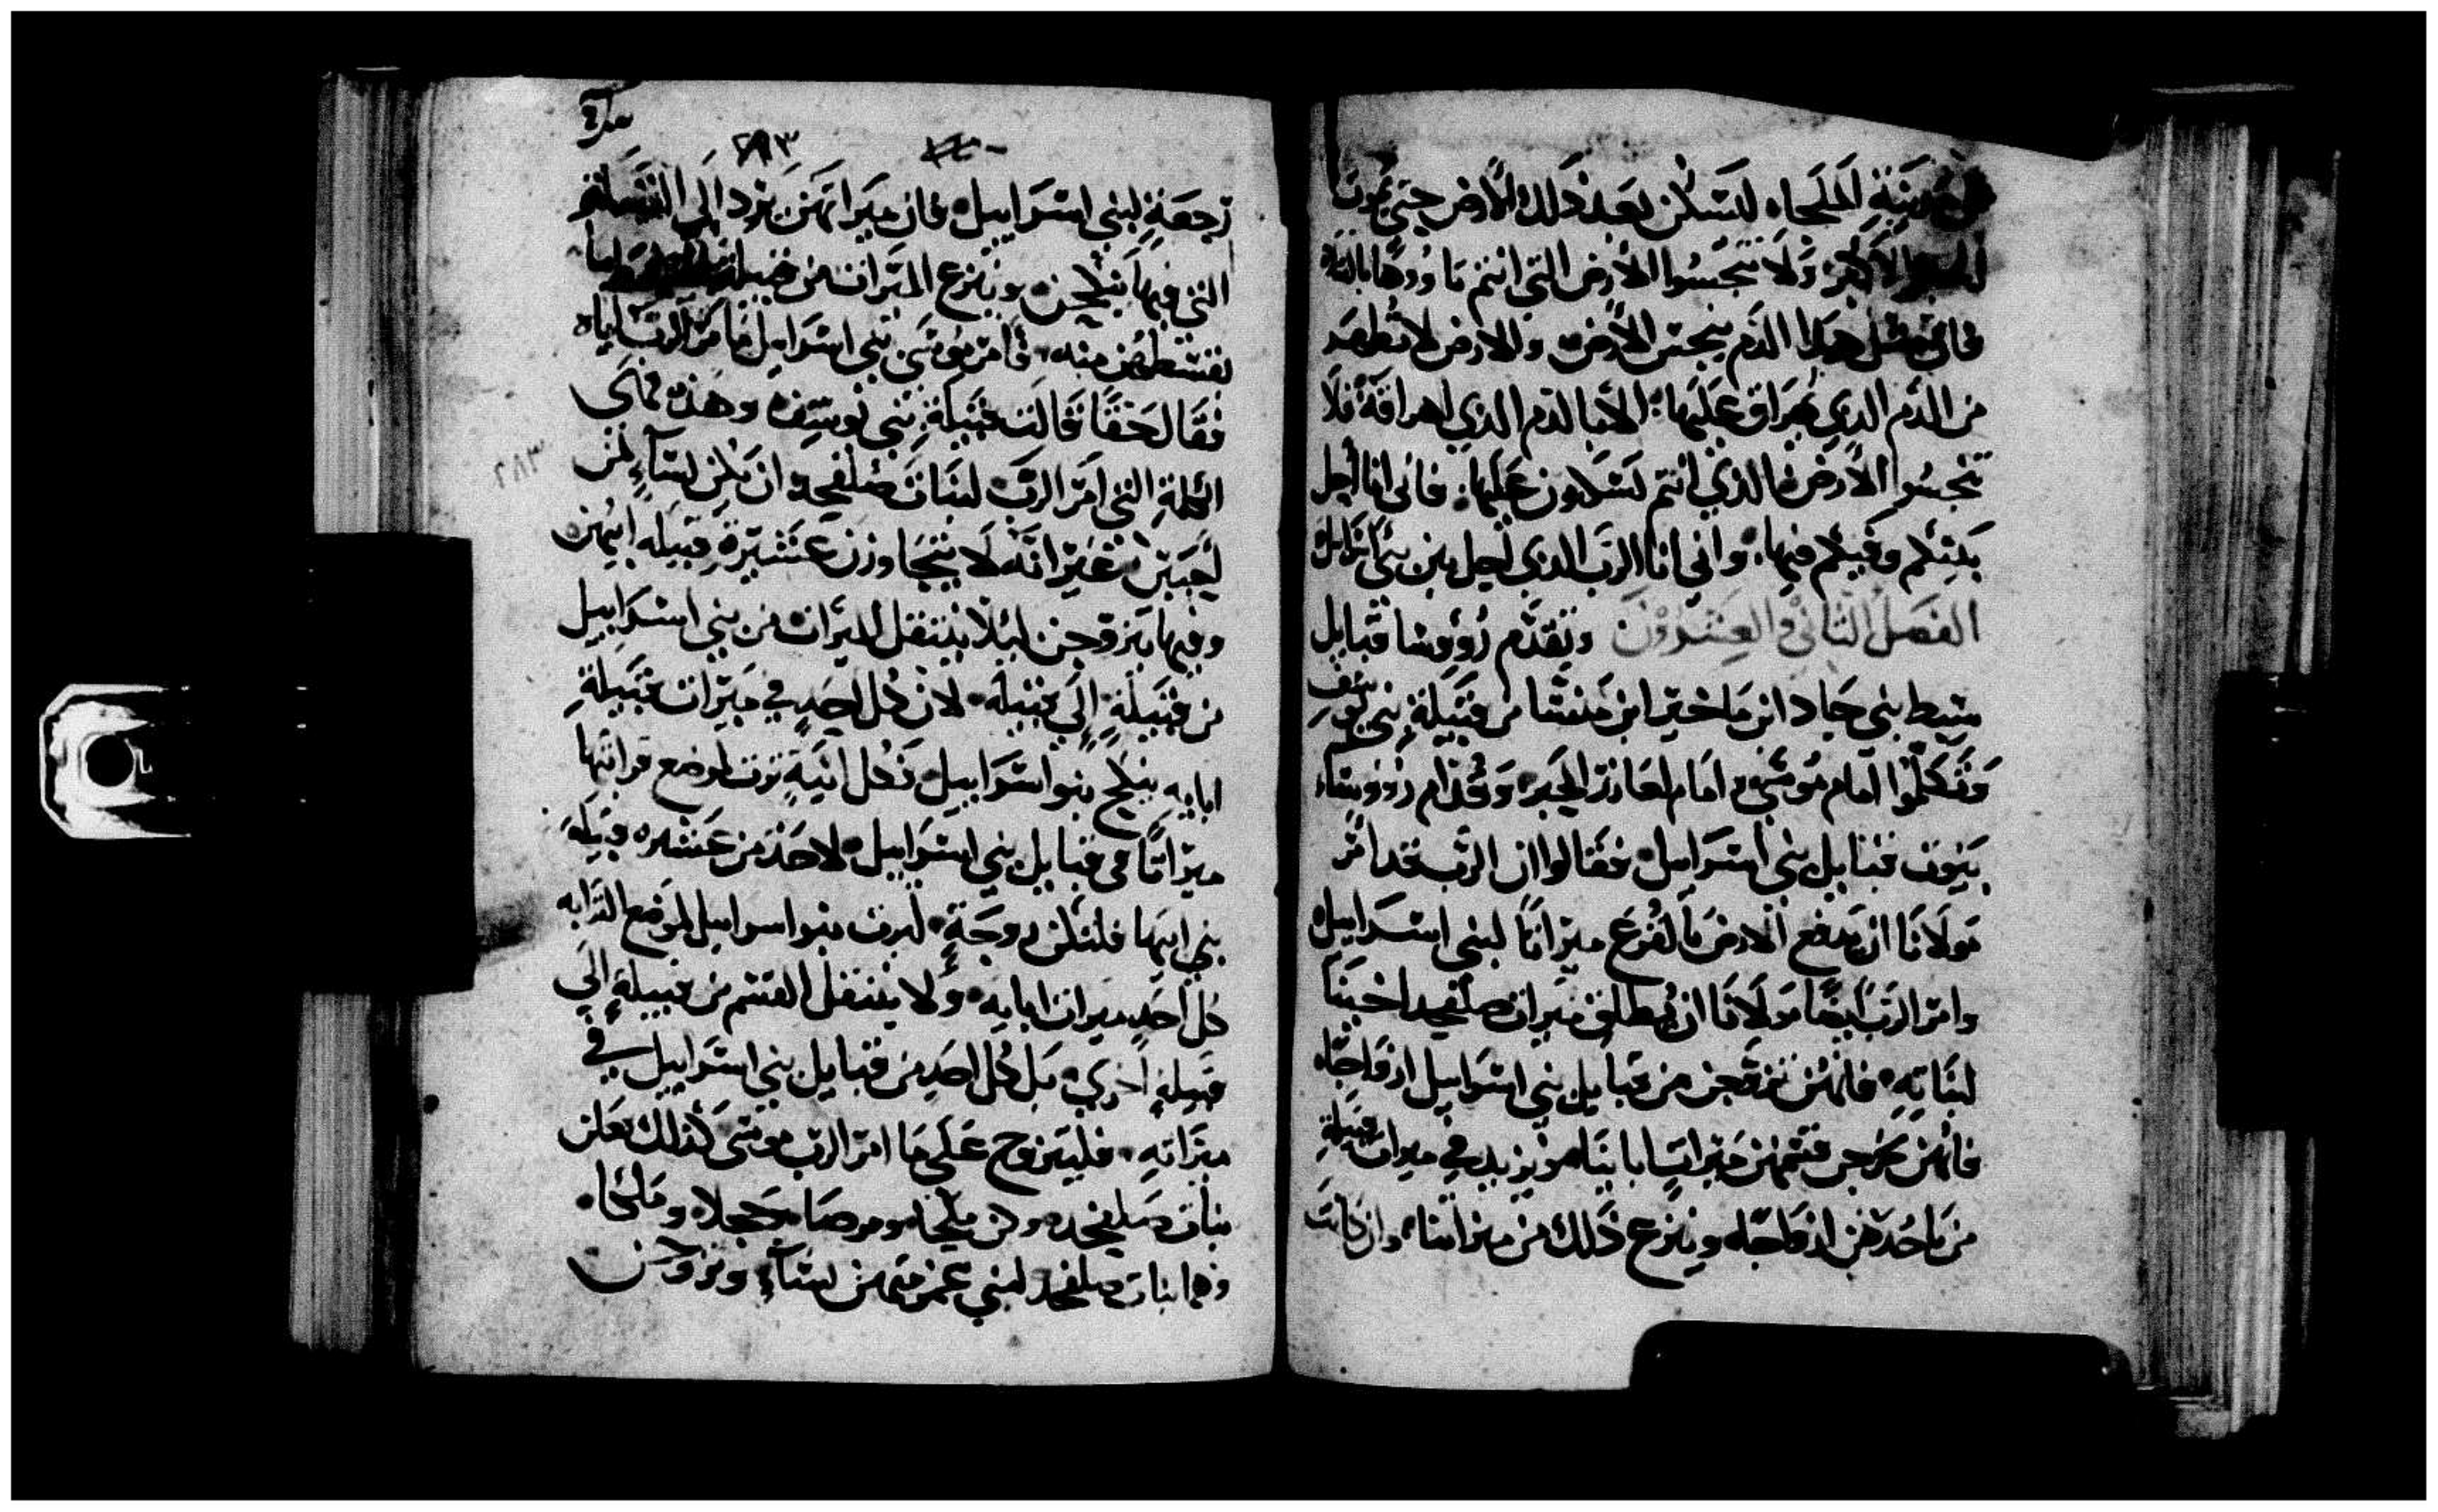 مدينة الملجاء ليسكن بعد ذلك الارض حتي يموت
الحبر الاكبر ولا تنجسوا الارض التي انتم ماووها بالدم
فان مثل هذا الدم ينجس الارض والارض لا تطهر
من الدم الذي يهراق عليها الا بالدم الذي اهراقه فلا
تنجسوا الارض الذي انتم تسكنون عليها فاني انا احل
بينكم وفيكم فيها واني انا الرب الذي احل بين بني اسرايل
الفصل الثاني والعشرون وتقدم رووسا قبايل
سبط بني جاد ابن ماخير ابن منشا من قبيلة بني يوسف
وتكلموا امام موسي وامام العازر الحبر وقدام رووساء
بيوت قبايل بني اسراييل فقالوا ان الرب قد امر
مولانا ان يدفع الارض بالقرع ميراثا لبني اسراييل
وامر الرب ايضا مولانا ان يطلق ميراث صلفحد اخينا
لبناته فانهن تزوجن من قبايل بني اسراييل ازواجا
فانهن يخرجن قسمهن ميراث ابائنا ويزيد في ميراث قبيلة
من ياخدهن ازواجا وينزع ذلك من ميراثنا وان كانت
٢٨٣
رجعة لبني اسراييل فان ميراثهن يزد الي القبيلة
التي فيها ينكحن وينزع الميراث من قبيلة
بقسطهن منه فامر موسي بني اسراييل بامر الرب اياه
فقال حقا قالت قبيلة بني يوسف وهذه هي
الكلمة التي امر الرب لبنات صلفحد ان يكن لساء لمن
احبين غير انه لا يتجاوزن عشيرة قبيله ابيهن
وفيها يتزوجن ليلا ينتقل الميراث من بني اسراييل
من قبيلة الي قبيله لان كل احد في ميراث قبيلة
ابايه ينكح بنو اسراييل فكل ابنة ترث لموضع قرابتها
ميراثا في قبايل بني اسراييل لاحد من عشيره قبيله
بني ابيها فلتكن زوجة ليرث بنو اسراييل لموضع القرابه
كل احد ميراث ابايه ولا ينتقل القسم من قبيلة الي
قبيلة اخري بل كل احد من قبايل بني اسراييل في
ميراثه فليتزوج علي ما امر الرب موسي كذلك فعلن
بنات صلفحد وكن ملحا وترصا وحجلا وملكا
وهما بنات صلفحد لبني عمومتهن لساء وتزوجن
٢٨٣